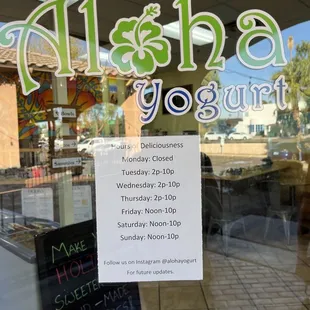 Aloha
Yogurt
Hours of Deliciousness
Monday: Closed
Tuesday: 2p-10p
Wednesday: 2p-10p
Thursday: 2p-10p
Friday: Noon-10p
Saturday: Noon-10p
Sunday: Noon-10p
Follow us on Instagram @alohayogurt
For future updates.
MAKE
HOL
SWEETE